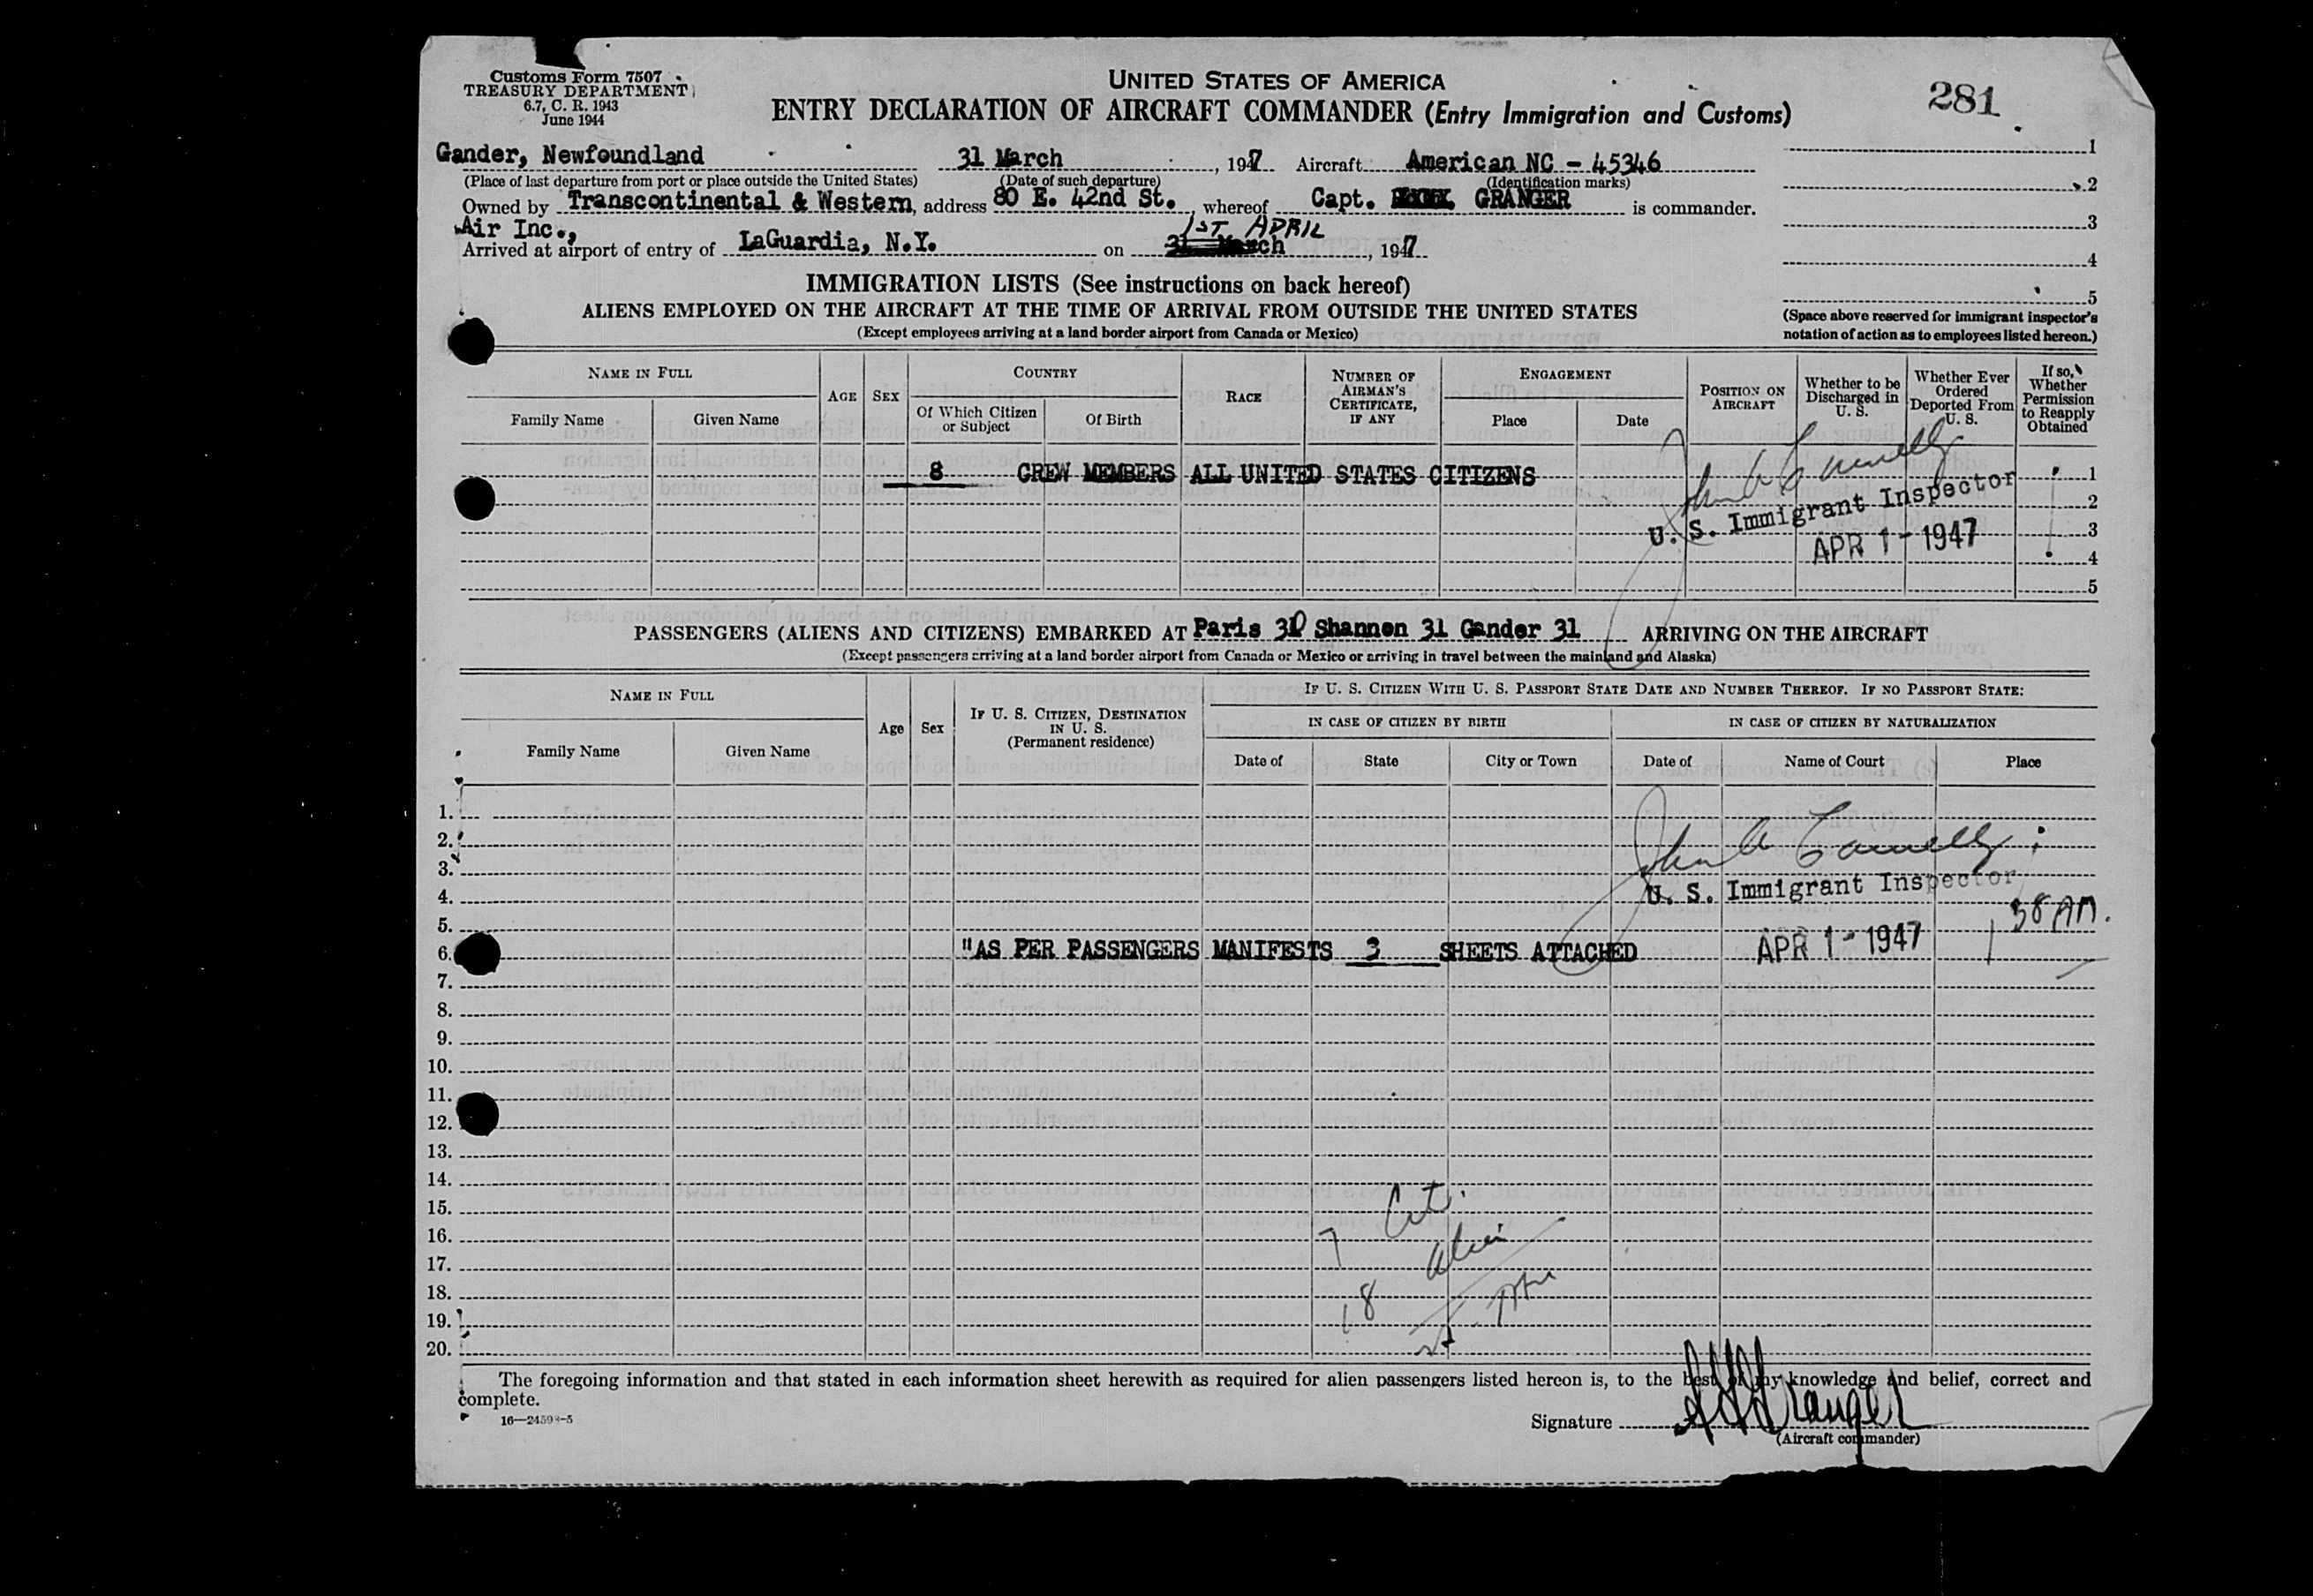 Customs Form 7507
TREASURY DEPARTMENT
6.7, C. R. 1943
June 1944
UNITED STATES OF AMERICA
ENTRY DECLARATION OF AIRCRAFT COMMANDER (Entry Immigration and Customs)
281
Gander, Newfoundland 31 March, 1947 Aircraft American NC - 45346
(Place of last departure from port or place outside the United States) (Date of such departure) (Identification marks)
Owned by Transcontinental & Western, address 80 E. 42nd St. whereof Capt. GRANGER is commander.
Air Inc., 1ST APRIL
Arrived at airport of entry of LaGuardia, N.Y. on 31 March, 1947
1
2
3
4
5
(Space above reserved for immigrant inspector's
notation of action as to employees listed hereon.)
IMMIGRATION LISTS (See instructions on back hereof)
ALIENS EMPLOYED ON THE AIRCRAFT AT THE TIME OF ARRIVAL FROM OUTSIDE THE UNITED STATES
(Except employees arriving at a land border airport from Canada or Mexico)
NAME IN FULL
Family Name
Given Name
AGE
SEX
COUNTRY
Of Which Citizen
or Subject
Of Birth
RACE
NUMBER OF
AIRMAN'S
CERTIFICATE,
IF ANY
ENGAGEMENT
Place
Date
POSITION ON
AIRCRAFT
Whether to be
Discharged in
U. S.
Whether Ever
Ordered
Deported From
U. S.
If so,
Whether
Permission
to Reapply
Obtained
8 CREW MEMBERS ALL UNITED STATES CITIZENS
John A Connelly
U. S. Immigrant Inspector
APR 1 - 1947
1
2
3
4
5
PASSENGERS (ALIENS AND CITIZENS) EMBARKED AT Paris 30 Shannon 31 Gander 31 ARRIVING ON THE AIRCRAFT
(Except passengers arriving at a land border airport from Canada or Mexico or arriving in travel between the mainland and Alaska)
NAME IN FULL
Family Name
Given Name
Age
Sex
IF U. S. CITIZEN, DESTINATION
IN U. S.
(Permanent residence)
IF U. S. CITIZEN WITH U. S. PASSPORT STATE DATE AND NUMBER THEREOF. IF NO PASSPORT STATE:
IN CASE OF CITIZEN BY BIRTH
IN CASE OF CITIZEN BY NATURALIZATION
Date of
State
City or Town
Date of
Name of Court
Place
1.
2.
3.
4.
5.
6.
John A Connelly
U. S. Immigrant Inspector
1 38 AM.
"AS PER PASSENGERS MANIFESTS 3 SHEETS ATTACHED
APR 1 - 1947
7.
8.
9.
10.
11.
12.
13.
14.
15.
16.
17.
18.
19.
20.
7 Cit.
18 Alien
The foregoing information and that stated in each information sheet herewith as required for alien passengers listed hereon is, to the best of my knowledge and belief, correct and
complete.
Signature Granger
(Aircraft commander)